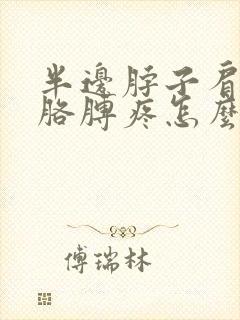 半邊脖子肩
胳膊疼怎麼
傅瑞林